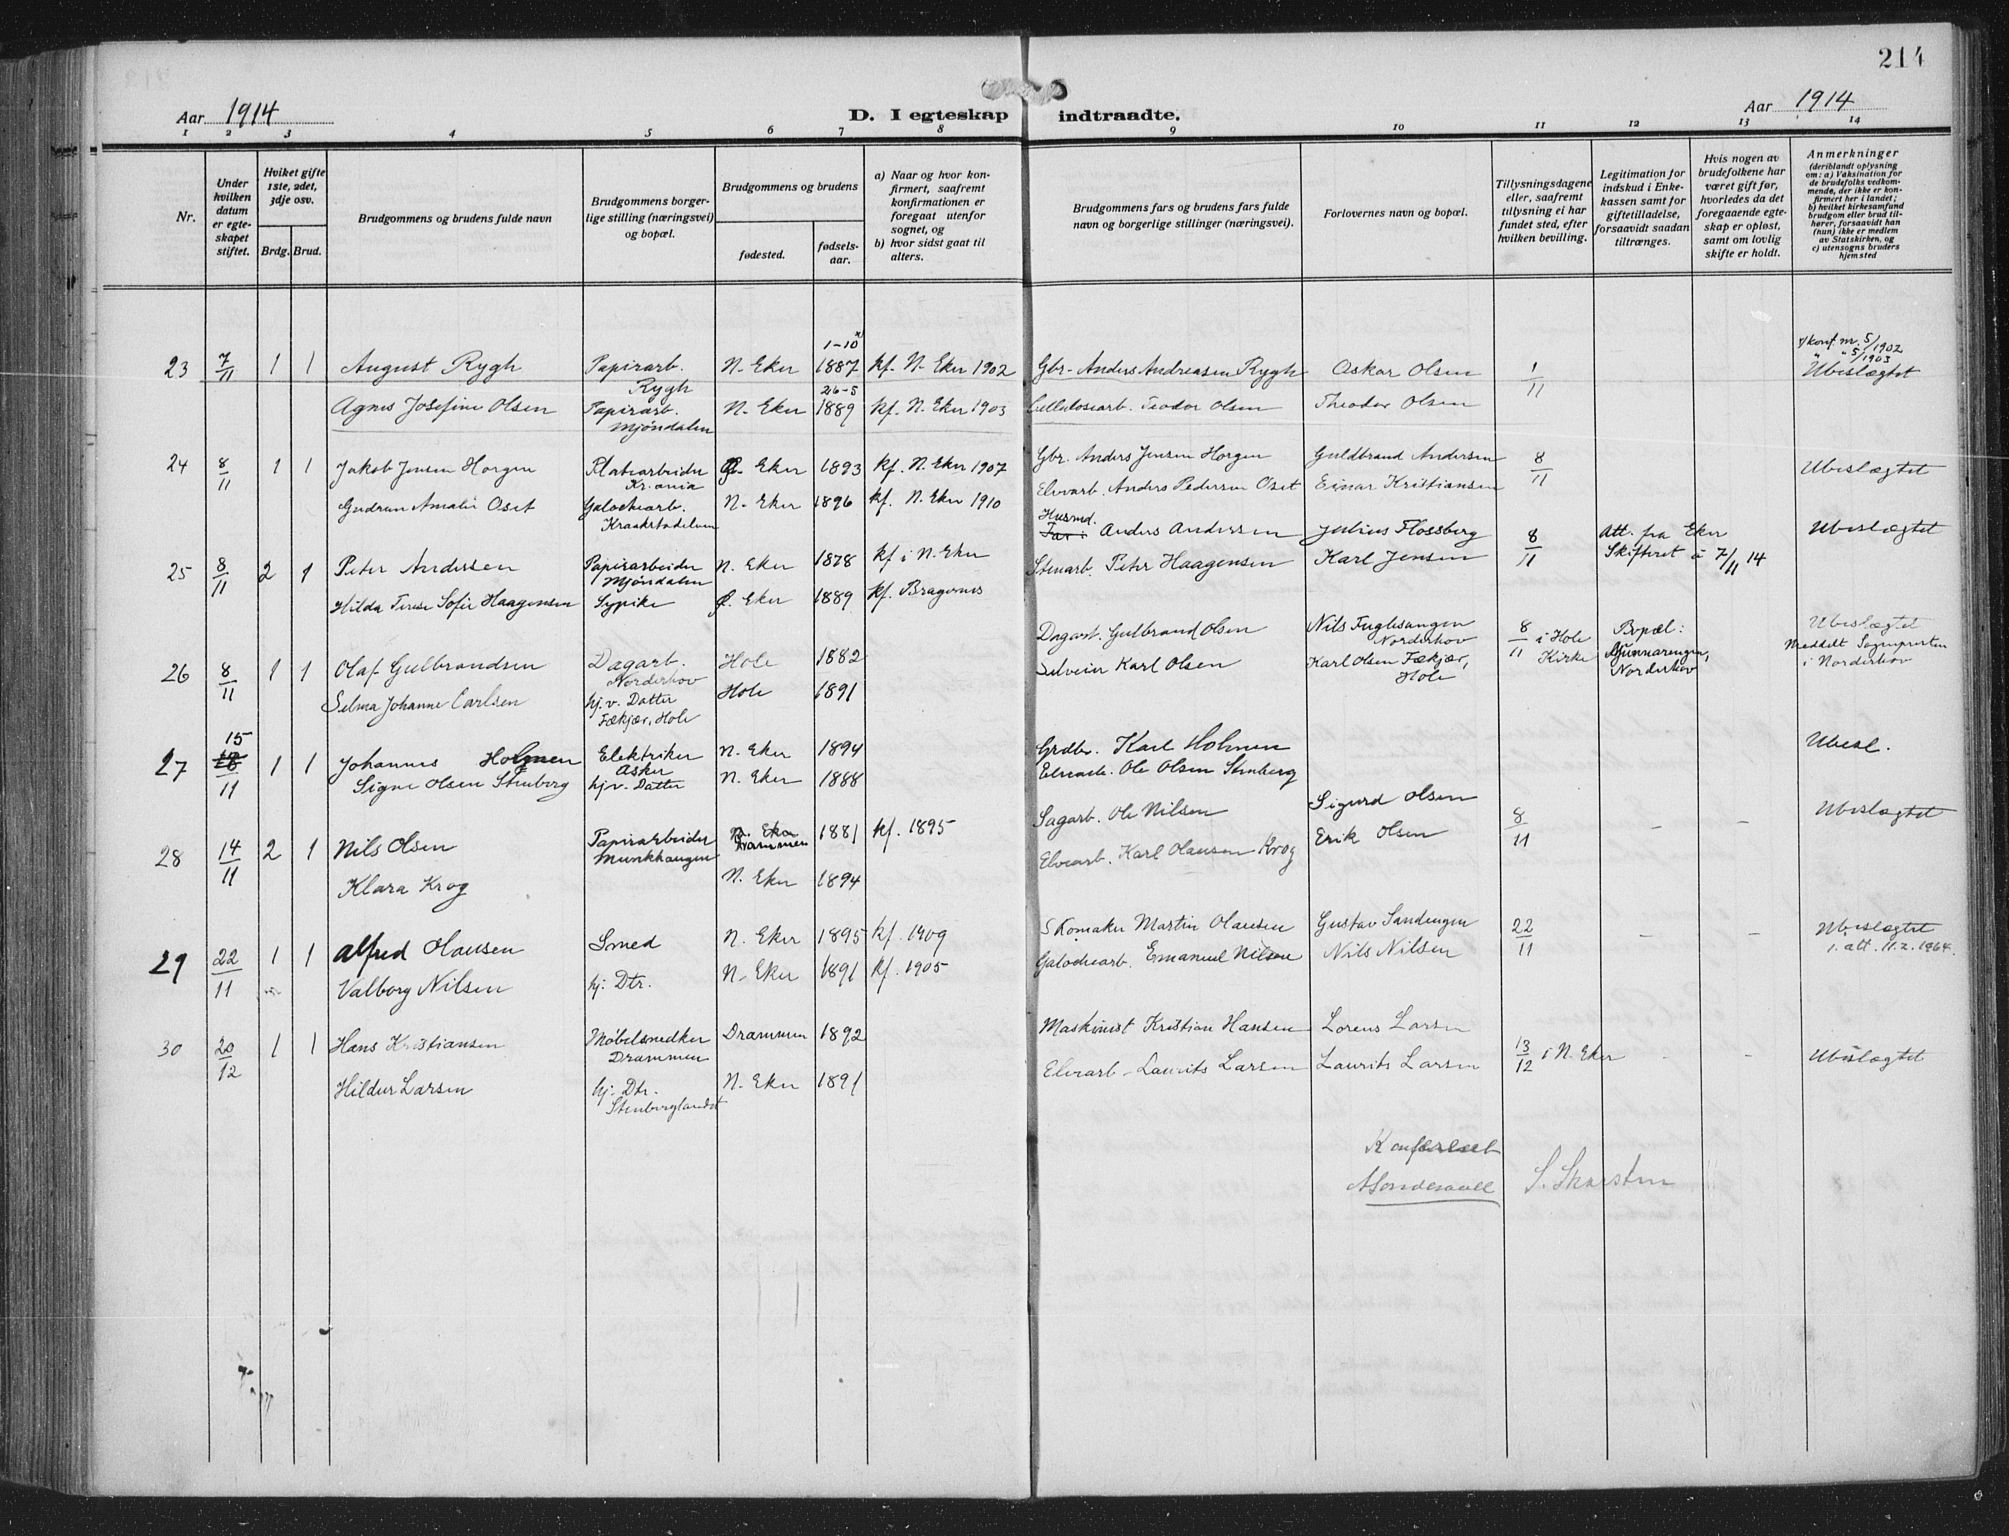 214
Aar 1914
D. I egteskap indtraadte.
Aar 1914
1 2 3 4 5 6 7 8 9 10 11 12 13 14
Nr.
Under hvilken datum er egteskapet stiftet.
Hviket gifte 1ste, 2det, 3dje osv.
Brdg. Brud.
Brudgommens og brudens fulde navn
Brudgommens borgerlige stilling (næringsvei) og bopæl.
Brudgommens og brudens
fødested.
fødselsaar.
a) Naar og hvor konfirmert, saafremt konfirmationen er foregaat utenfor sognet, og
b) hvor sidst gaat til alters.
Brudgommens fars og brudens fars fulde navn og borgerlige stillinger (næringsvei).
Forlovernes navn og bopæl.
Tillysningsdagene eller, saafremt tillysning ei har fundet sted, efter hvilken bevilling.
Legitimation for indskud i Enkekassen samt for giftetilladelse, forsaavidt saadan tiltrænges.
Hvis nogen av brudefolkene har været gift før, hvorledes da det foregaaende egteskap er opløst, samt om lovlig skifte er holdt.
Anmerkninger
(deriblandt oplysning om: a) Vaksination for de brudefolks vedkommende, der ikke er konfirmert her i landet; b) hvilket kirkesamfund brudgom eller brud tilhører, forsaavidt han (hun) ikke er medlem av Statskirken, og c) utensogns bruders hjemsted
23 7/11 1 1 August Rygh Papirarb. Rygh N. Eker 1-10 1887 kf. N. Eker 1902 Gbr. Anders Andreasen Rygh Oskar Olsen 1/11 konf. nr. 5/1902 " " 5/1903 Ubeslægtet
Agnes Josefine Olsen Papirarb. Mjøndalen N. Eker 26-5 1889 kf. N. Eker 1903 Cellulosearb. Teodor Olsen Theodor Olsen
24 8/11 1 1 Jakob Jensen Horgen Platearbeider Kr.ania Ø. Eker 1893 kf. N. Eker 1907 Gbr. Anders Jensen Horgen Guldbrand Andersen 8/11 Ubeslægtet
Gudrun Amalie Oset Galochearb. Kraakstadelven N. Eker 1896 kf. N. Eker 1910 Elvearb. Anders Pedersen Oset Einar Kristiansen
25 8/11 2 1 Peter Andersen Papirarbeider Mjøndalen N. Eker 1878 kf i N. Eker Husmd. Anders Andersen Julius Flossberg 8/11 Att. fra Eker Skifteret a 7/11 14 Ubeslægtet
Hilda Terese Sofie Haagensen Sypike Ø. Eker 1889 kf. Bragernes Stenarb. Peter Haagensen Karl Jensen
26 8/11 1 1 Olaf Gulbrandsen Dagarb. Norderhov Hole 1882 Dagarb. Gulbrand Olsen Nils Fuglesangen Norderhov 8/11 i Hole Kirke Bopæl: Gunnarengen, Norderhov Ubeslægtet Meddelt Sognepresten i Norderhov
Selma Johanne Carlsen hj.v. Datter Fækjær, Hole Hole 1891 Selveier Karl Olsen Karl Olsen Fækjær, Hole
27 15/11 1 1 Johannes Holmen Elektriker Asker N. Eker 1894 Grdbr. Karl Holmen Ubesl.
Signe Olsen Stenberg hjv. Datter N. Eker 1888 Elvearb. Ole Olsen Stenberg
28 14/11 2 1 Nils Olsen Papirarbeider Munkhaugen N. Eker Drammen 1881 kf. 1895 Sagarb. Ole Nilsen Sigurd Olsen 8/11 - - Ubeslægtet
Klara Krog N. Eker 1894 Elvearb. Karl Olausen Krog Erik Olsen
29 22/11 1 1 Alfred Olausen Smed N. Eker 1895 kf. 1909 Skomaker Martin Olausen Gustav Sandengen 22/11 - - Ubeslægtet 1. att. 11.2.1964.
Valborg Nilsen hj. Dtr. N. Eker 1891 kf. 1905 Galochearb. Emanuel Nilsen Nils Nilsen
30 20/12 1 1 Hans Kristiansen Møbelsnedker Drammen Drammen 1892 Maskinist Kristian Hansen Lorens Larsen 13/12 i N. Eker - - Ubeslægtet
Hildur Larsen hj. Dtr. Stenberglandet N. Eker 1891 Elvearb. Laurits Larsen Laurits Larsen
Konfereret
S. Skarsten